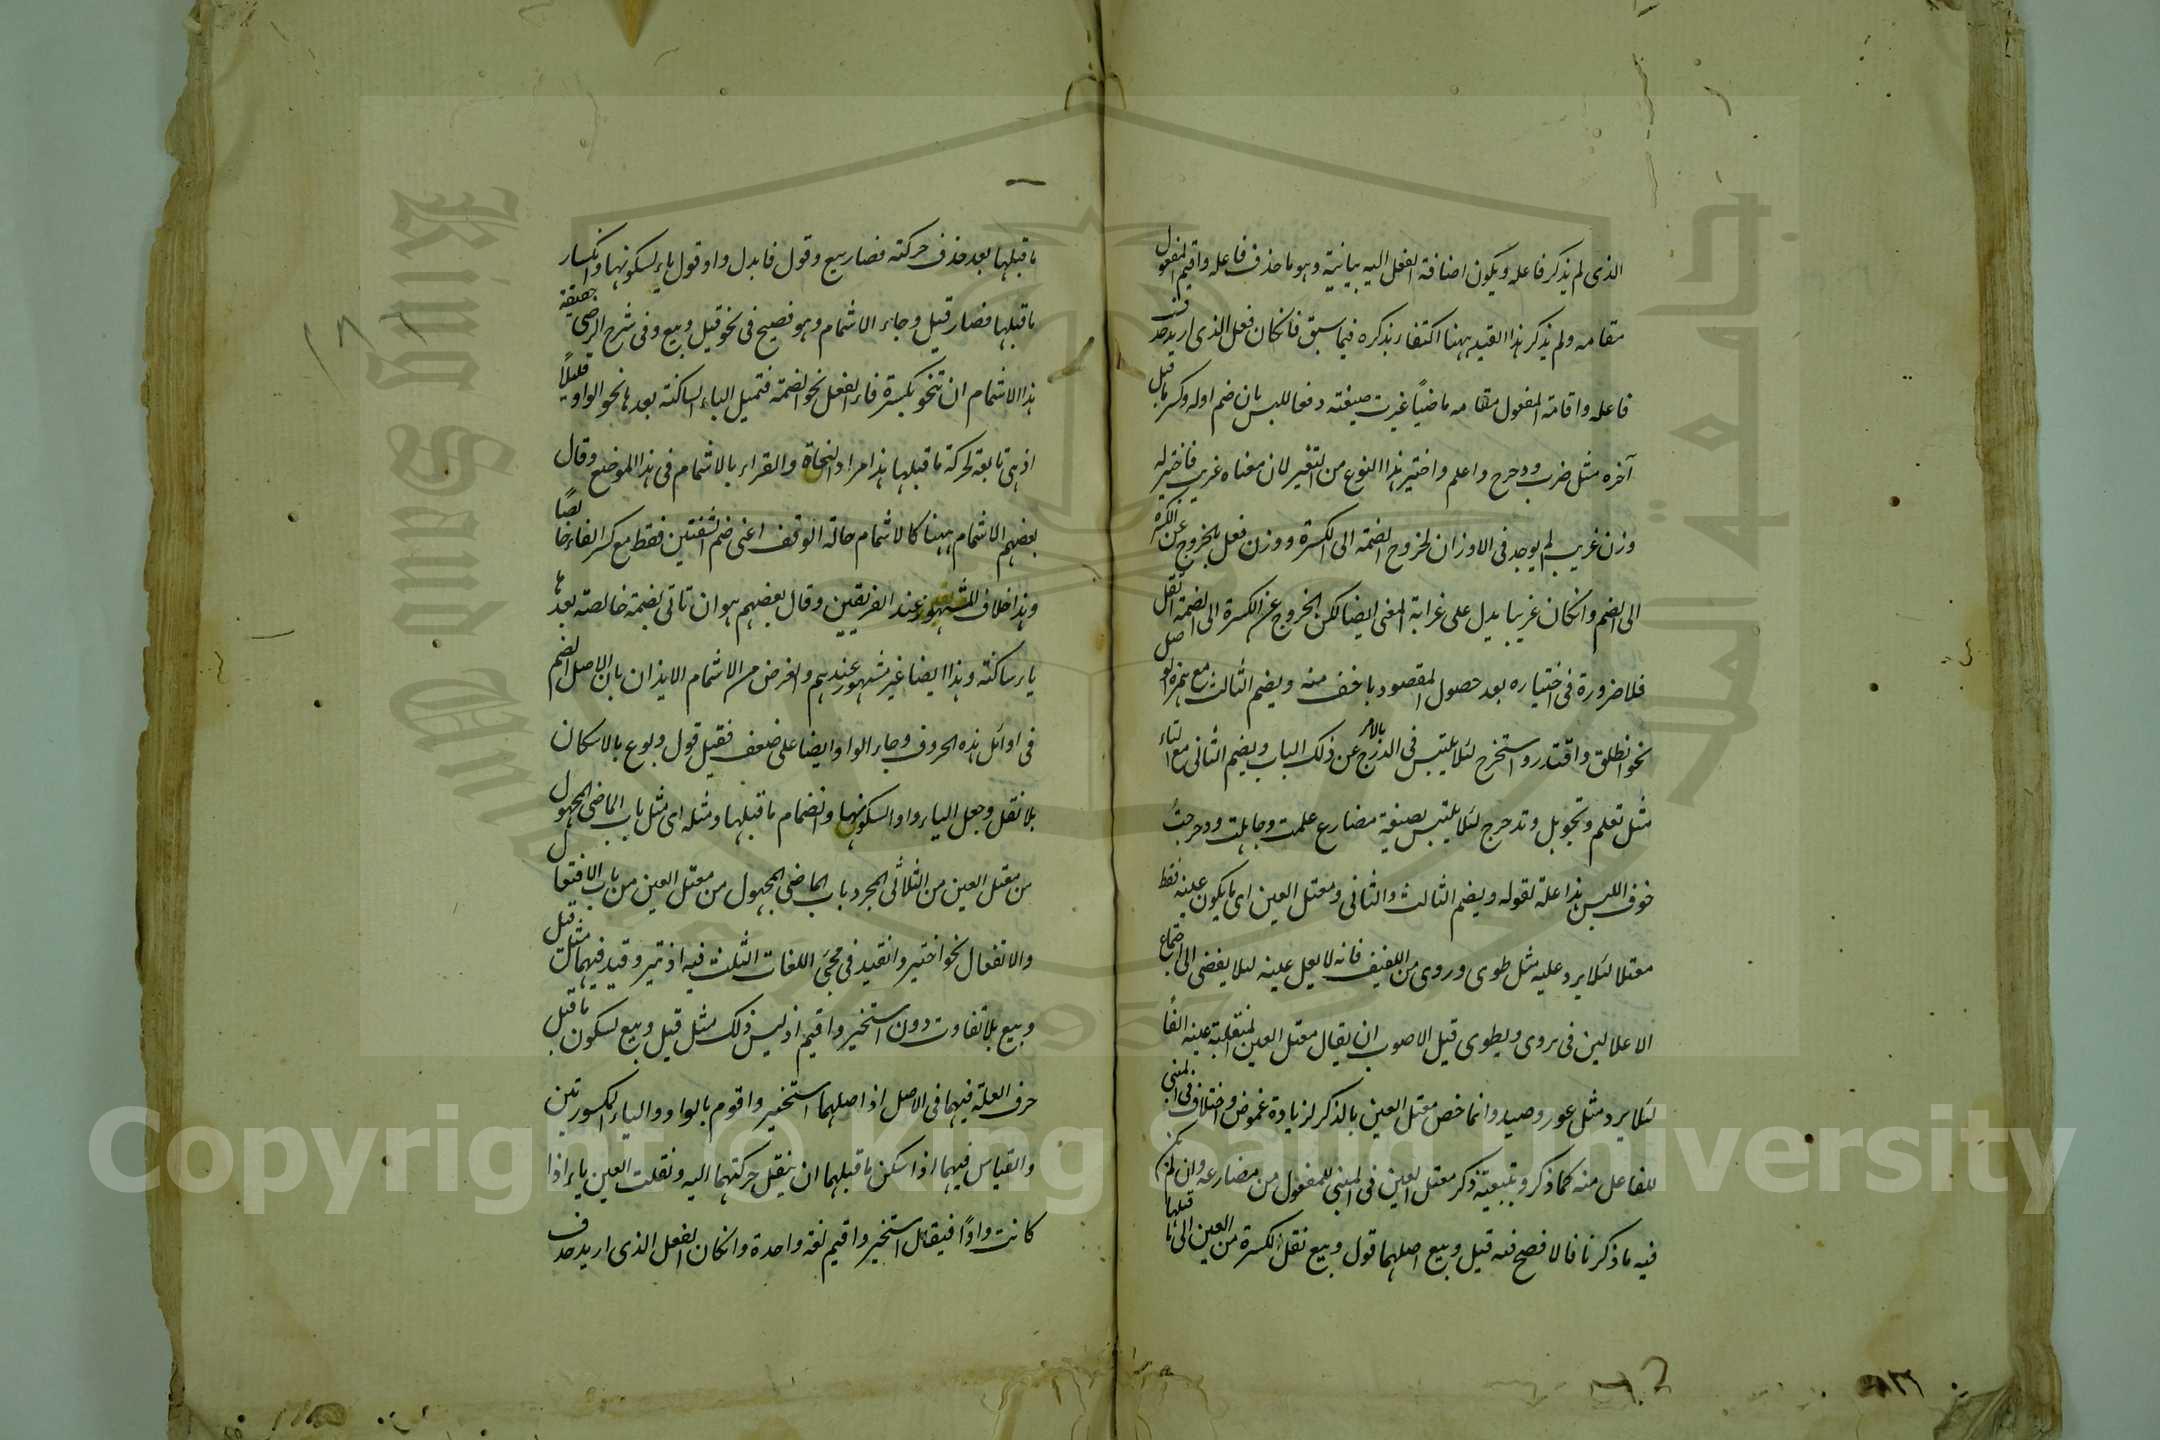 الذى لم يذكر فاعله ويكون اضافة الفعل اليه بيانية وهو ما حذف فاعله واقيم المفعول
مقامه ولم يذكر هذا القيد ههنا اكتفاء بذكره فيما سبق فانكان فعل الذى اريد حذف
فاعله واقامة المفعول مقامه ماضيًا غيرت صيغته دفعا للبس بان ضم اوله وكسر ما قبل
آخره مثل ضرب ودحرج واعلم واختير هذا النوع من التغير لان معناه غريب فاختير له
وزن غريب لم يوجد فى الاوزان لخروج الضمة الى الكسرة ووزن فعل بالخروج عن الكسرة
الى الضم وانكان غريبا يدل على غرابة المعنى ايضا لكن الخروج عن الكسرة الى الضمة اثقل
فلا ضرورة فى اختياره بعد حصول المقصود باخف منه ويضم الثالث مع همزة الوصل
نحو انطلق واقتدر واستخرج لئلا يلتبس فى الدرج بالامر عن ذلك الباب ويضم الثانى مع التاء
مثل تعلم وتجوهل وتدحرج لئلا يلتبس بصيغة مضارع علمت وجاهلت ودحرجت
خوف اللبس هذا علة لقوله ويضم الثالث والثانى ومعتل العين اى ما يكون عينه فقط
معتلا لئلا يرد عليه مثل طوى وروى من اللفيف فانه لا يعل عينه لئلا يفضى الى اجتماع
الاعلالين فى يروى ويطوى قيل الاصوب ان يقال معتل العين المنقلبة عينه الفًا
لئلا يرد مثل عور وصيد وانما خص معتل العين بالذكر لزيادة غموض واختلاف فى المبنى
للفاعل منه كما ذكر وبتبعيته ذكر معتل العين فى المبنى للمفعول من مضارعه وان لم يكن
فيه ما ذكرنا فالافصح فيه قيل وبيع اصلهما قول وبيع نقل الكسرة من العين الى ما قبلها
ما قبلها بعد حذف حركته فصار بيع وقول فابدل واو قول ياء لسكونها وانكسار
ما قبلها فصار قيل وجاء الاشمام وهو فصيح فى نحو قيل وبيع وفى شرح الرضى حقيقة
هذا الاشمام ان تنحو بكسرة فاء الفعل نحو الضمة فتميل الياء الساكنة بعدها نحو الواو قليلًا
اذ هى تابعة لحركة ما قبلها هذا مراد النحاة والقراء بالاشمام فى هذا الموضع وقال
بعضهم الاشمام ههنا كالاشمام حالة الوقف اعنى ضم الشفتين فقط مع كسر الفاء خالصًا
وهذا خلاف المشهور عند الفريقين وقال بعضهم هو ان تاتى بضمة خالصة بعدها
ياء ساكنة وهذا ايضا غير مشهور عندهم والغرض من الاشمام الايذان بان الاصل الضم
فى اوائل هذه الحروف وجاء الواو ايضا على ضعف فقيل قول وبوع بالاسكان
بلا نقل وجعل الياء واوا لسكونها وانضمام ما قبلها ومثله اى مثل باب الماضى المجهول
من معتل العين من الثلاثى المجرد باب الماضى المجهول من معتل العين من باب الافتعال
والانفعال نحو اختير وانقيد فى مجئ اللغات الثلث فيه اذ تير وقيد فيهما مثل قيل
وبيع بلا تفاوت دون استخير واقيم اذ ليس ذلك مثل قيل وبيع لسكون ما قبل
حرف العلة فيهما فى الاصل اذ اصلهما استخير واقوم بالواو والياء المكسورتين
والقياس فيهما اذا سكن ما قبلهما ان ينقل حركتهما اليه ونقلت العين ياء اذا
كانت واوًا فيقال استخير واقيم لغة واحدة وانكان الفعل الذى اريد حذف
Copyright © King Saud University